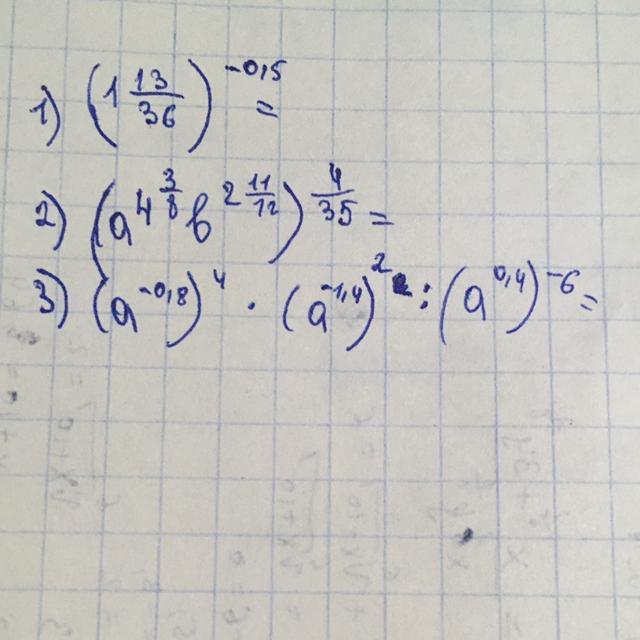 1) (1 13/36)^-0,5 =
2) (a^4 3/8 b^2 11/12)^4/35 =
3) (a^-0,8)^4 · (a^-1,4)^2 : (a^0,4)^-6 =